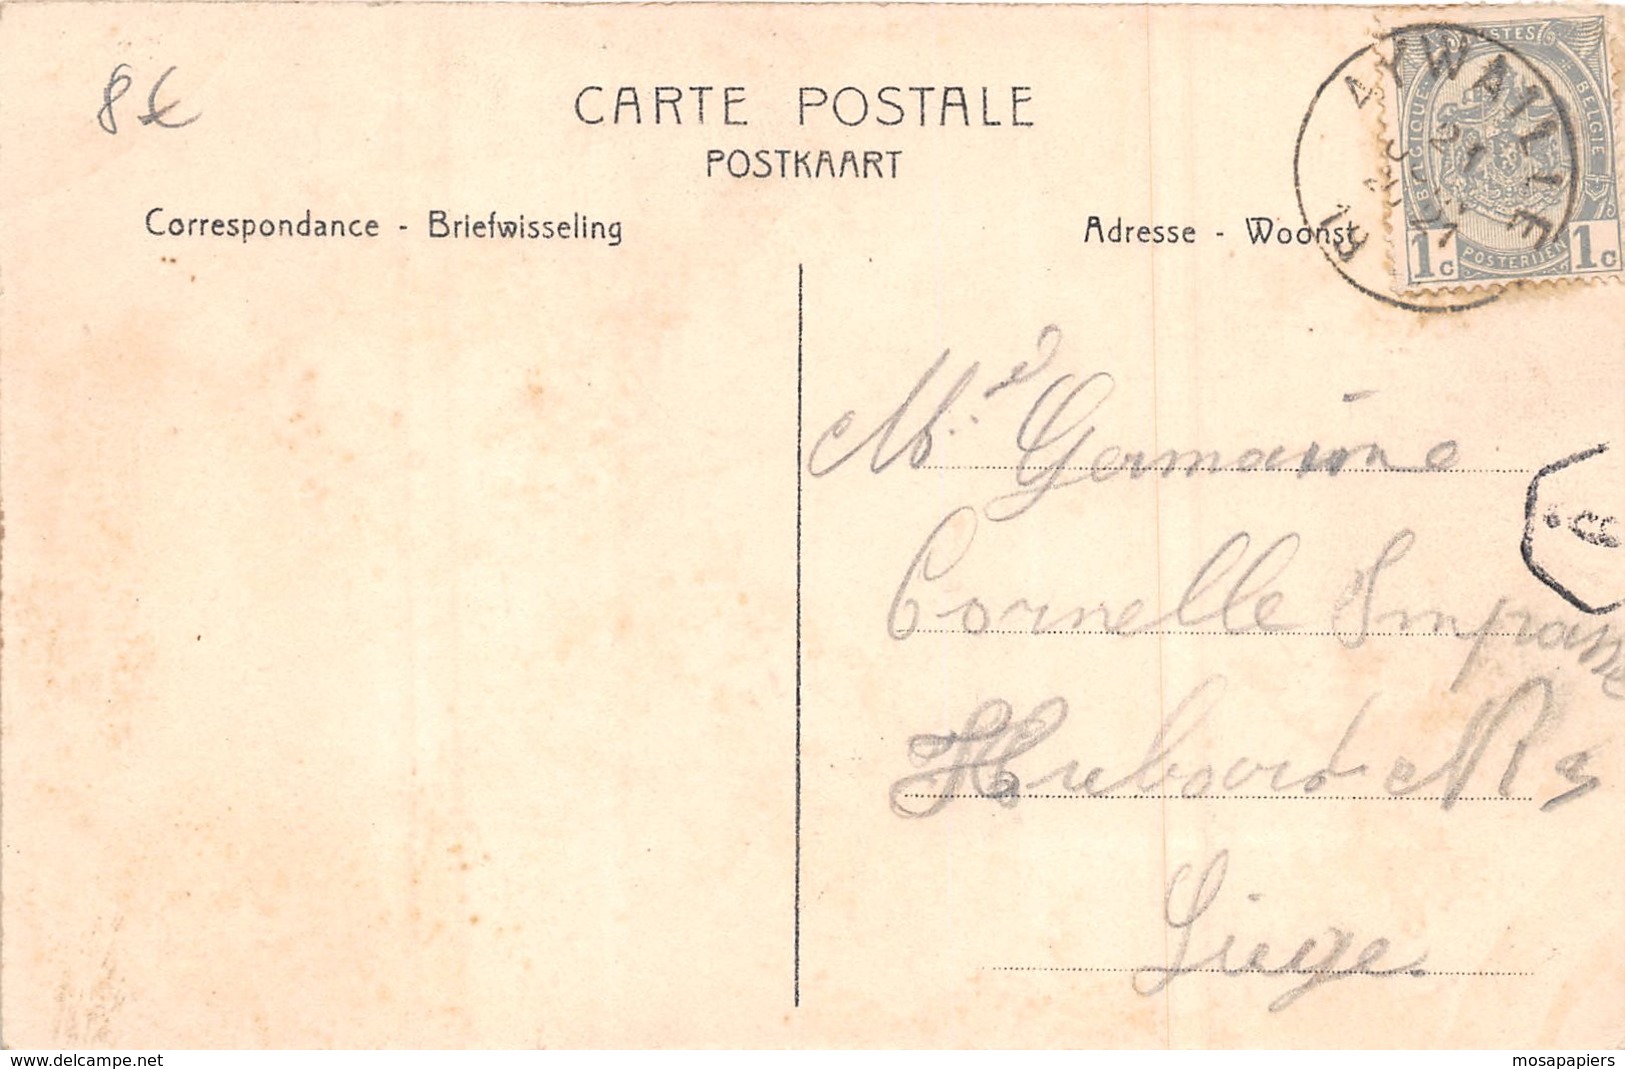 8€
CARTE POSTALE
POSTKAART
Correspondance - Briefwisseling
Adresse - Woonst
AYWAILLE
POSTES
BELGIQUE
BELGIE
POSTERIJEN
1c 1c
Mlle Germaine
Cornelle Impasse
Hubart N
Liège
www.delcampe.net
mosapapiers